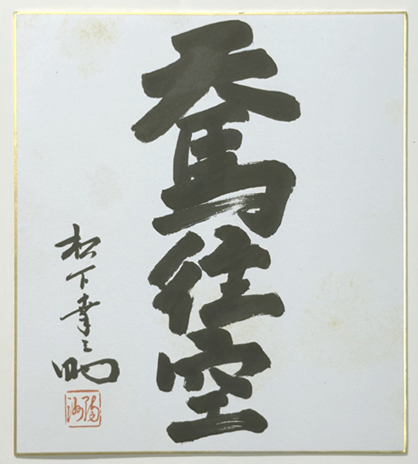 天馬往空
松下幸之助